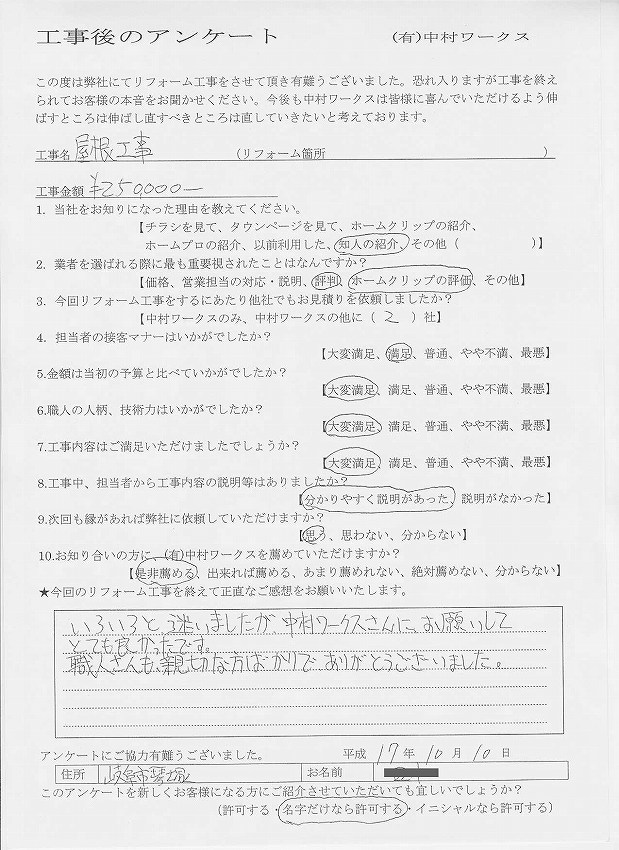 工事後のアンケート (有)中村ワークス
この度は弊社にてリフォーム工事をさせて頂き有難うございました。恐れ入りますが工事を終え
られてお客様の本音をお聞かせください。今後も中村ワークスは皆様に喜んでいただけるよう伸
ばすところは伸ばし直すべきところは直していきたいと考えております。
工事名 屋根工事 (リフォーム箇所 )
工事金額 ¥250,000-
1. 当社をお知りになった理由を教えてください。
【チラシを見て、タウンページを見て、ホームクリップの紹介、
ホームプロの紹介、以前利用した、知人の紹介、その他( )】
2. 業者を選ばれる際に最も重要視されたことはなんですか?
【価格、営業担当の対応・説明、評判、ホームクリップの評価、その他】
3. 今回リフォーム工事をするにあたり他社でもお見積りを依頼しましたか?
【中村ワークスのみ、中村ワークスの他に( 2 )社】
4. 担当者の接客マナーはいかがでしたか?
【大変満足、満足、普通、やや不満、最悪】
5.金額は当初の予算と比べていかがでしたか?
【大変満足、満足、普通、やや不満、最悪】
6.職人の人柄、技術力はいかがでしたか?
【大変満足、満足、普通、やや不満、最悪】
7.工事内容はご満足いただけましたでしょうか?
【大変満足、満足、普通、やや不満、最悪】
8.工事中、担当者から工事内容の説明等はありましたか?
【分かりやすく説明があった、説明がなかった】
9.次回も縁があれば弊社に依頼していただけますか?
【思う、思わない、分からない】
10.お知り合いの方に、(有)中村ワークスを薦めていただけますか?
【是非薦める、出来れば薦める、あまり薦めれない、絶対薦めない、分からない】
★今回のリフォーム工事を終えて正直なご感想をお願いいたします。
いろいろと迷いましたが、中村ワークスさんに、お願いして
とても良かったです。
職人さんも、親切な方ばかりでありがとうございました。
アンケートにご協力有難うございました。 平成 17 年 10 月 10 日
住所 岐阜市琴塚 お名前
このアンケートを新しくお客様になる方にご紹介させていただいても宜しいでしょうか?
(許可する・名字だけなら許可する・イニシャルなら許可する)